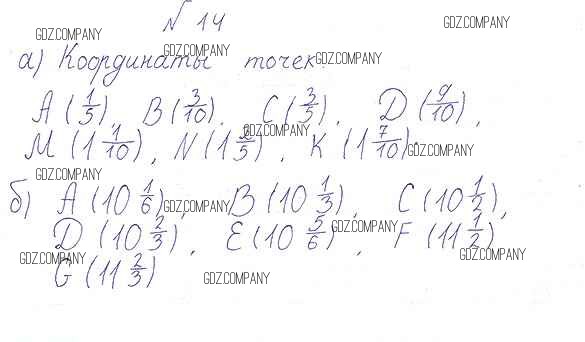 № 14
а) Координаты точек:
A (1/5), B (3/10), C (3/5), D (9/10),
M (1 1/10), N (1 2/5), K (1 7/10).
б) A (10 1/6), B (10 1/3), C (10 1/2),
D (10 2/3), E (10 5/6), F (11 1/2),
G (11 2/3)
GDZ.COMPANY
GDZ.COMPANY
GDZ.COMPANY
GDZ.COMPANY
GDZ.COMPANY
GDZ.COMPANY
GDZ.COMPANY
GDZ.COMPANY
GDZ.COMPANY
GDZ.COMPANY
GDZ.COMPANY
GDZ.COMPANY